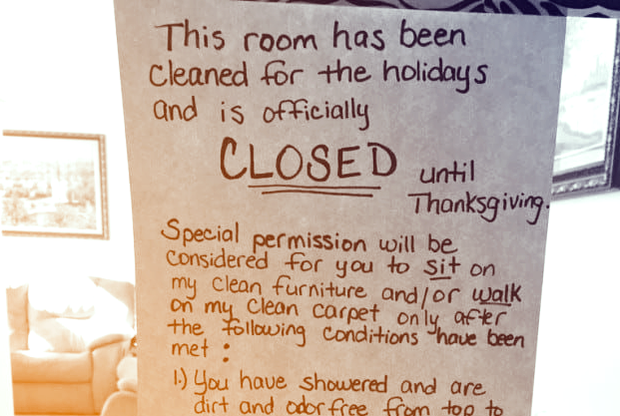 This room has been
cleaned for the holidays
and is officially
CLOSED until
Thanksgiving.
Special permission will be
considered for you to sit on
my clean furniture and/or walk
on my clean carpet only after
the following conditions have been
met :
1.) You have showered and are
dirt and odor free from top to